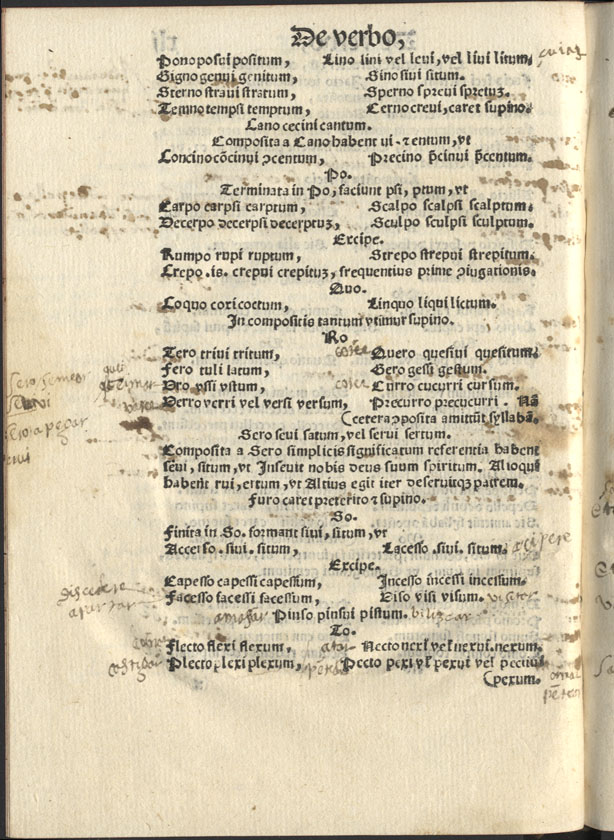 De verbo,
Pono posui positum, Lino lini vel leui, vel liui litum.
Gigno genui genitum, Sino siui situm.
Sterno straui stratum, Sperno spreui spretuꝫ.
Temno tempsi temptum, Cerno creui, caret supino.
Cano cecini cantum.
Composita a Cano habent ui. ⁊ entum, vt
Concino cōcinui ↄcentum, Precino p̄cinui p̄centum.
Po.
Terminata in Po, faciunt psi, ptum, vt
Carpo carpsi carptum, Scalpo scalpsi scalptum.
Decerpo decerpsi decerptuꝫ, Sculpo sculpsi sculptum.
Excipe.
Rumpo rupi ruptum, Strepo strepui strepitum.
Crepo .is. crepui crepituꝫ, frequentius prime ↄiugationis.
Quo.
Coquo coxi coctum, Linquo liqui lictum.
In compositis tantum vtimur supino.
Ro
Tero triui tritum, Quero quesiui quesitum.
Fero tuli latum, Gero gessi gestum.
Uro vssi vstum, Curro cucurri cursum.
Verro verri vel versi versum, Precurro precucurri. Nā
(cetera ↄposita amittūt syllabā.
Sero seui satum, vel serui sertum.
Composita a Sero simplicis significatum referentia habent
seui, situm, vt Inseuit nobis deus suum spiritum. Alioqui
habent rui, ertum, vt Altius egit iter deseruitqꝫ patrem.
Furo caret preterito ⁊ supino.
So.
Finita in So. formant siui, situm, vt
Accerso. siui. situm, Lacesso. siui. situm. accipere
Excipe.
discedere Capesso capessi capessum, Incesso incessi incessum.
apartar Facesso facessi facessum, Viso visi visum. visitar
amasar Pinso pinsui pistum.
To.
Flecto flexi flexum, atar Necto nexi vel nexui. nexum.
castigar Plecto plexi plexum, Pecto pexi vel pexui vel pectiui
(pexum.